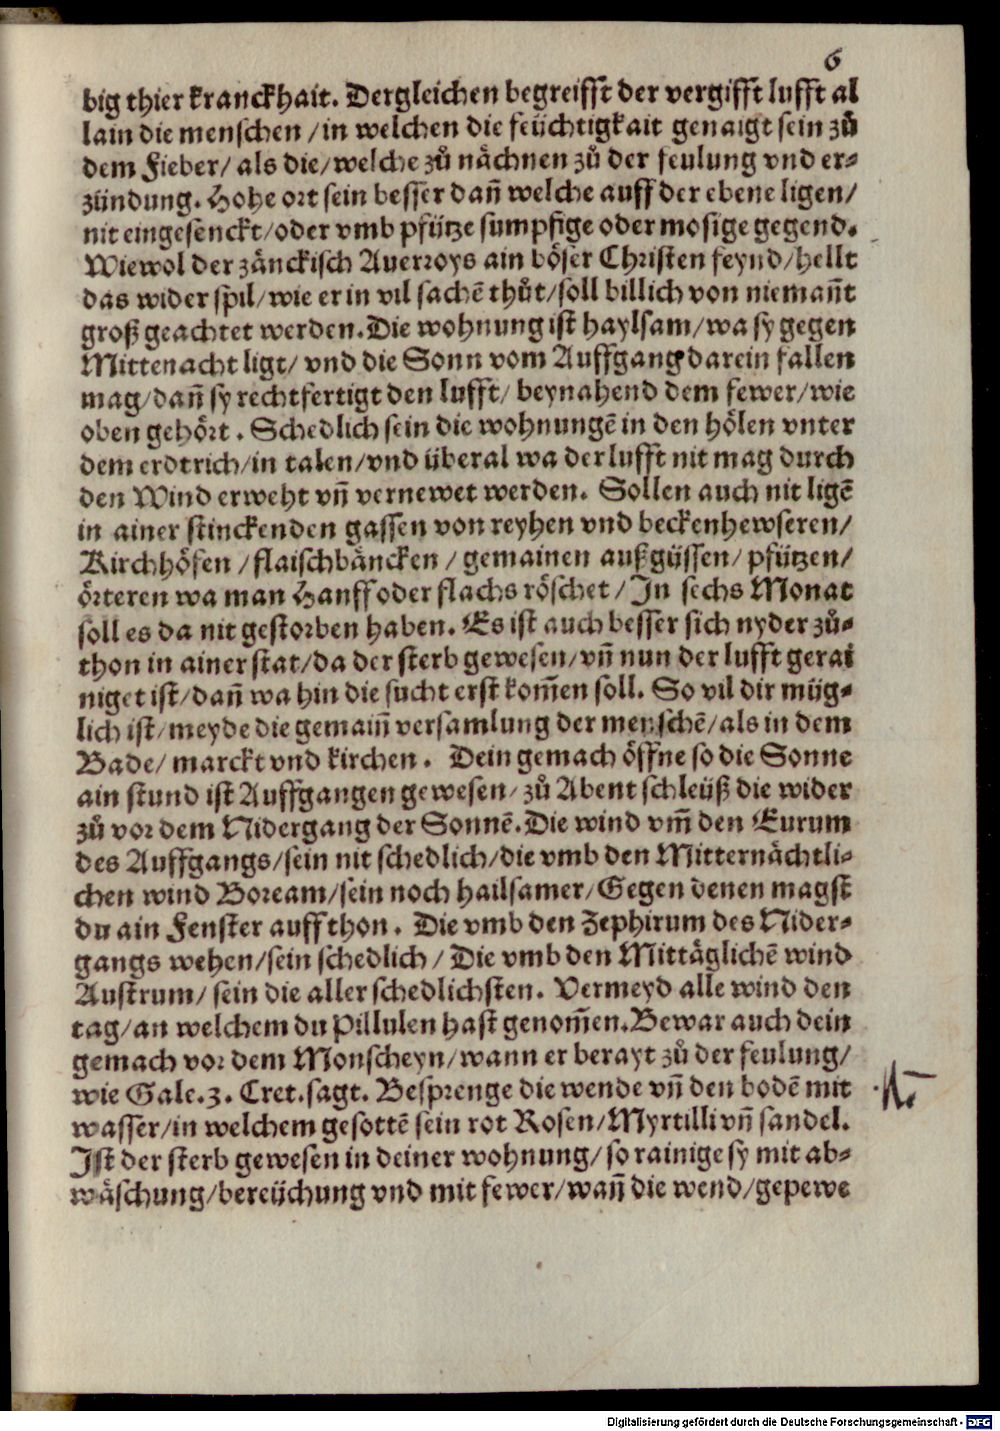 6
big thier kranckhait. Dergleichen begreifft der vergifft lufft al
lain die menschen / in welchen die feüchtigkait genaigt sein zů
dem Fieber / als die / welche zů nächnen zů der feulung vnd er-
zündung. Hohe ort sein besser dañ welche auff der ebene ligen /
nit eingesenckt / oder vmb pfütze sumpfige oder mosige gegend.
Wiewol der zänckisch Auerroys ain böser Christen feynd / hellt
das wider spil / wie er in vil sachē thůt / soll billich von niemañt
groß geachtet werden. Die wohnung ist haylsam / wa sy gegen
Mittenacht ligt / vnd die Sonn vom Auffgang darein fallen
mag / dañ sy rechtfertigt den lufft / beynahend dem fewer / wie
oben gehört. Schedlich sein die wohnungē in den hölen vnter
dem erdtrich / in talen / vnd überal wa der lufft nit mag durch
den Wind erweht vñ vernewet werden. Sollen auch nit ligē
in ainer stinckenden gassen von reyhen vnd beckenhewseren /
Kirchhöfen / flaischbäncken / gemainen außgüssen / pfützen /
örteren wa man Hanff oder flachs röschet / In sechs Monat
soll es da nit gestorben haben. Es ist auch besser sich nyder zů-
thon in ainer stat / da der sterb gewesen / vñ nun der lufft gerai
niget ist / dañ wa hin die sucht erst kom̄en soll. So vil dir müg-
lich ist / meyde die gemaiñ versamlung der menschē / als in dem
Bade / marckt vnd kirchen. Dein gemach öffne so die Sonne
ain stund ist Auffgangen gewesen / zů Abent schleüß die wider
zů vor dem Nidergang der Sonnē. Die wind vm̄ den Eurum
des Auffgangs / sein nit schedlich / die vmb den Mitternächtli-
chen wind Boream / sein noch hailsamer / Gegen denen magst
du ain Fenster auff thon. Die vmb den Zephirum des Nider-
gangs wehen / sein schedlich / Die vmb den Mittäglichē wind
Austrum / sein die aller schedlichsten. Vermeyd alle wind den
tag / an welchem du Pillulen hast genom̄en. Bewar auch dein
gemach vor dem Monscheyn / wann er berayt zů der feulung /
wie Gale. 3. Cret. sagt. Besprenge die wende vñ den bodē mit
wasser / in welchem gesottē sein rot Rosen / Myrtilli vñ sandel.
Ist der sterb gewesen in deiner wohnung / so rainige sy mit ab-
wäschung / bereüchung vnd mit fewer / wañ die wend / gepewe
Digitalisierung gefördert durch die Deutsche Forschungsgemeinschaft - DFG